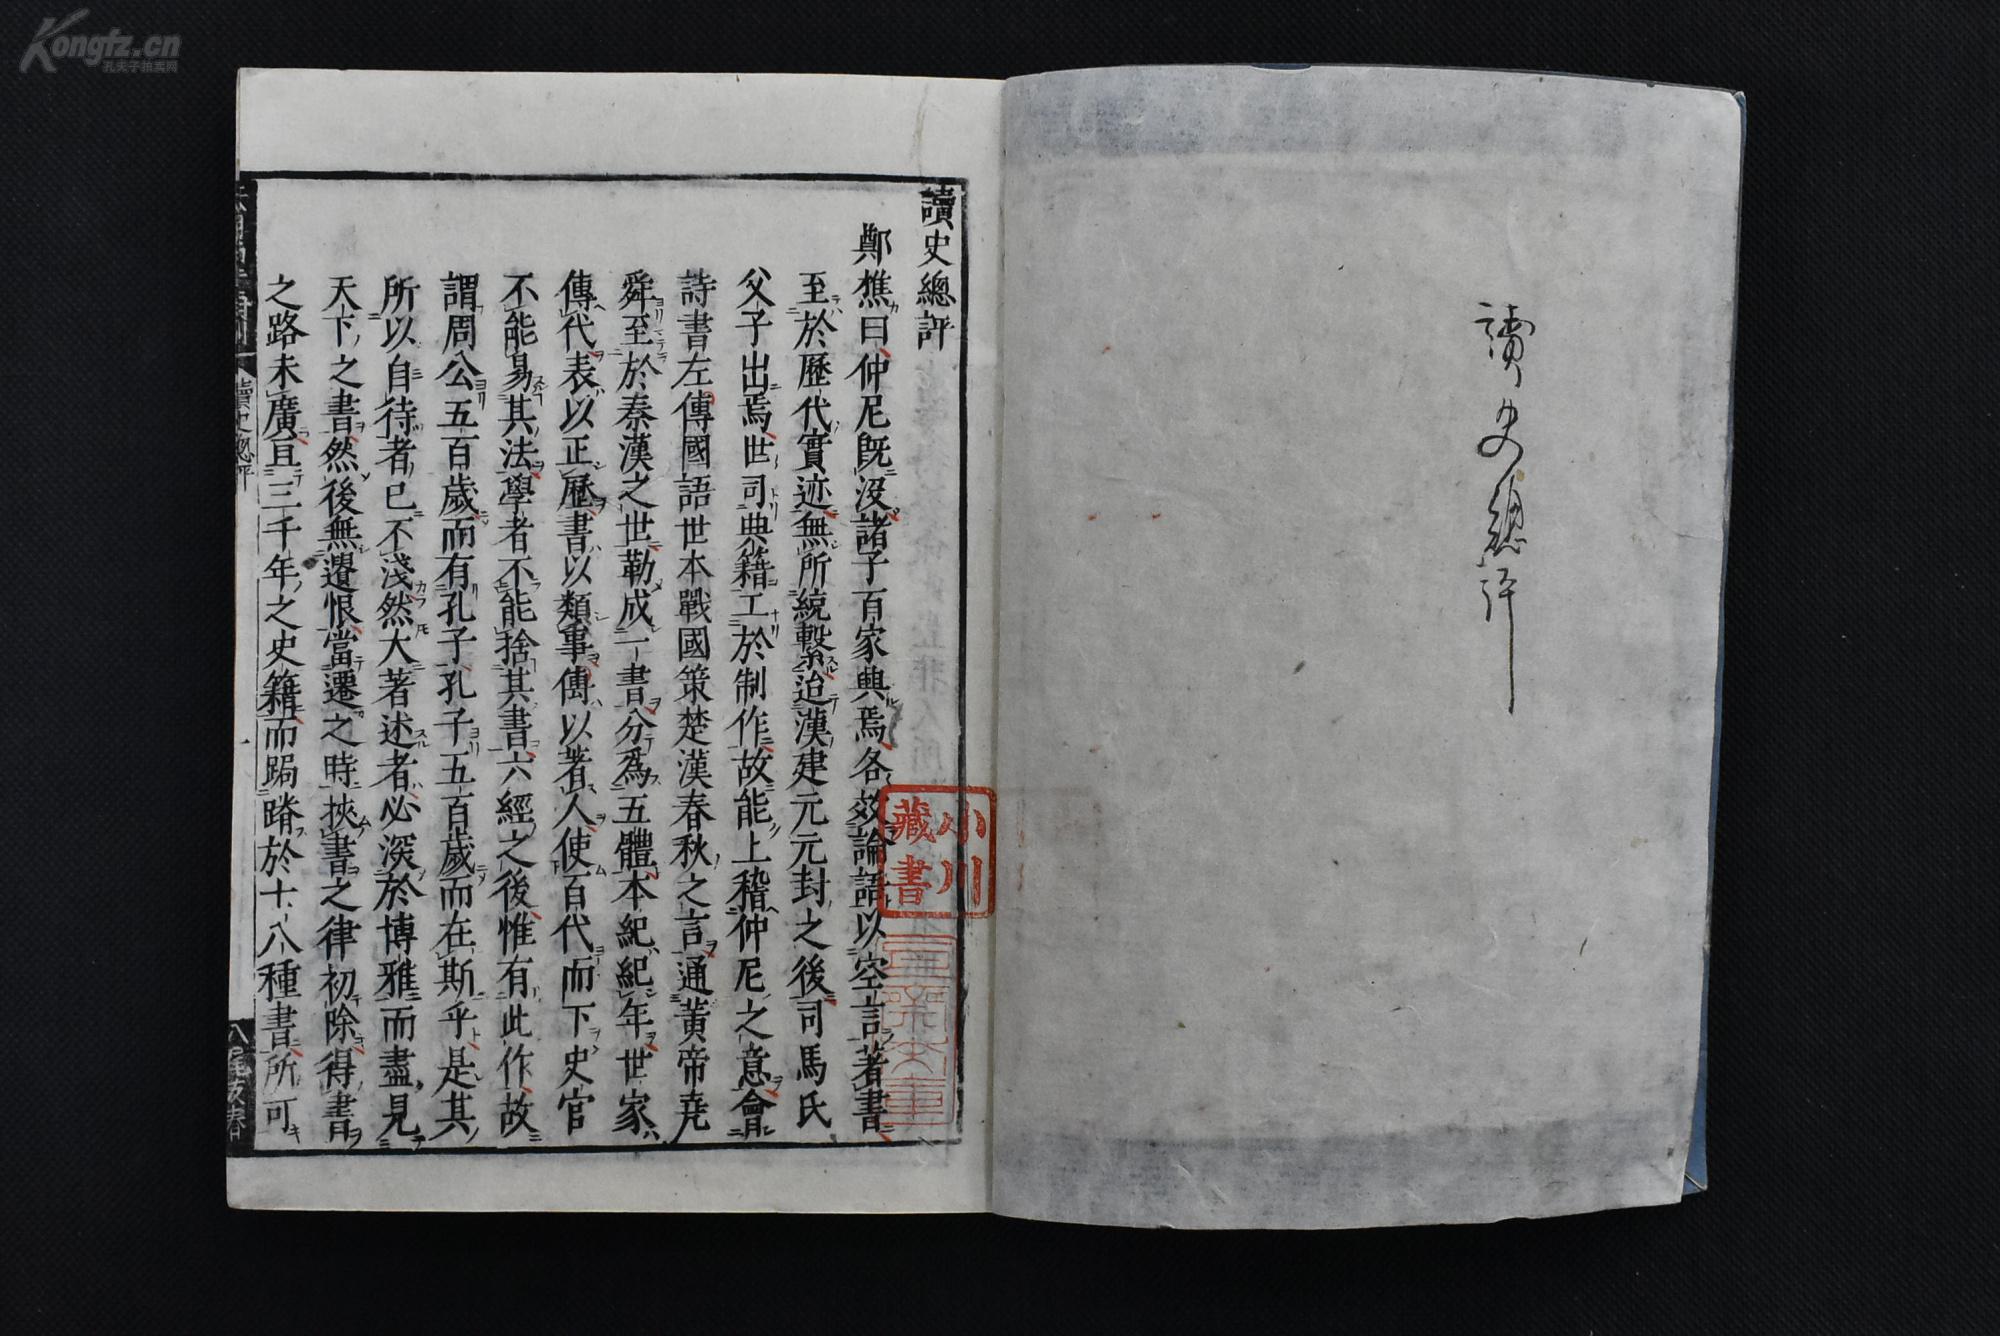 Kongfz.cn
孔夫子拍卖网
讀史總評
讀史總評
鄭樵曰仲尼既没諸子百家興焉各效論語以空言著書
至於歷代實迹無所統繫迨漢建元元封之後司馬氏
父子出焉世司典籍工於制作故能上稽仲尼之意會
詩書左傳國語世本戰國策楚漢春秋之言通黃帝堯
舜至於秦漢之世勒成一書分爲五體本紀紀年世家
傳代表以正歷書以類事傳以著人使百代而下史官
不能易其法學者不能捨其書六經之後惟有此作故
謂周公五百歲而有孔子孔子五百歲而在斯乎是其
所以自待者已不淺然大著述者必深於博雅而盡見
天下之書然後無遺恨當遷之時挾書之律初除得書
之路未廣亘三千年之史籍而跼蹐於七八種書所可
讀史總評
一
小川
藏書